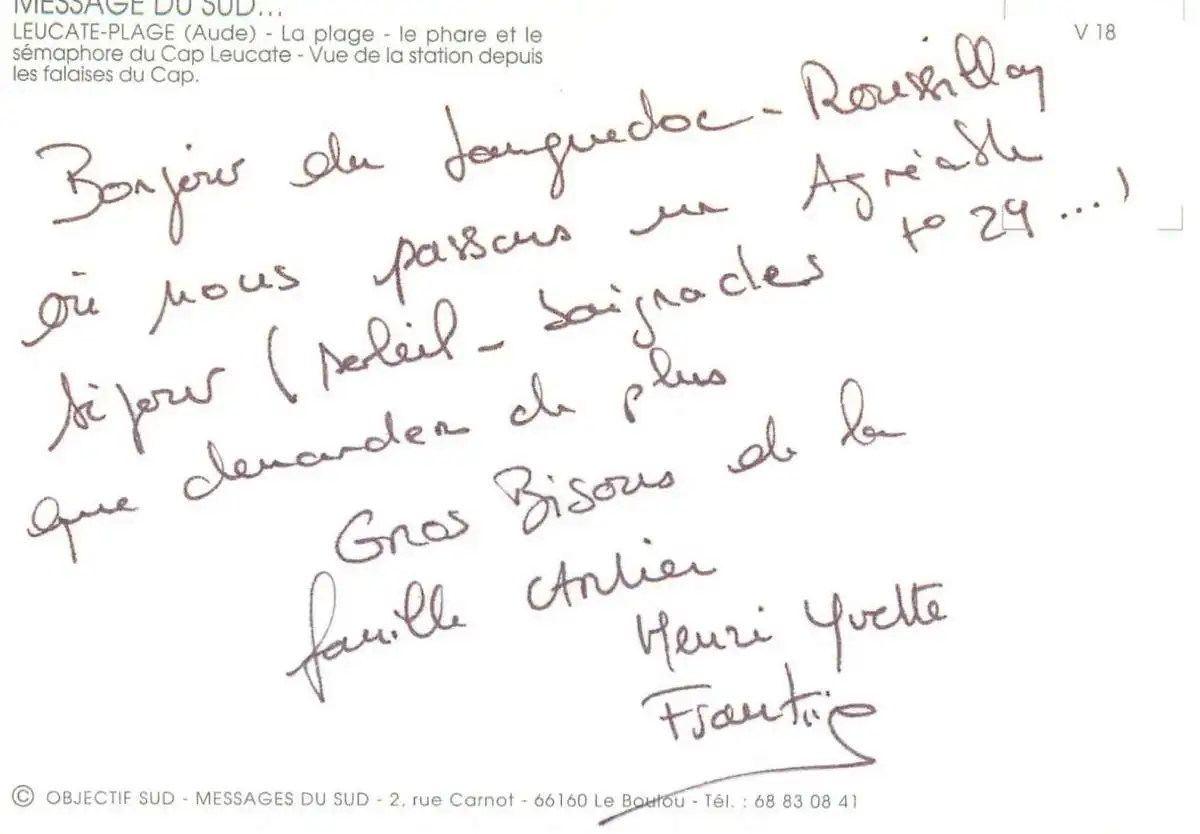 MESSAGE DU SUD...
LEUCATE-PLAGE (Aude) - La plage - le phare et le
sémaphore du Cap Leucate - Vue de la station depuis
les falaises du Cap.
V 18
Bonjour du Languedoc - Roussillon
où nous passons un Agréable
séjour (soleil - baignades to 29 ...)
que demander de plus
Gros Bisous de la
famille Arlier
Henri Yvette
© OBJECTIF SUD - MESSAGES DU SUD - 2, rue Carnot - 66160 Le Boulou - Tél. : 68 83 08 41